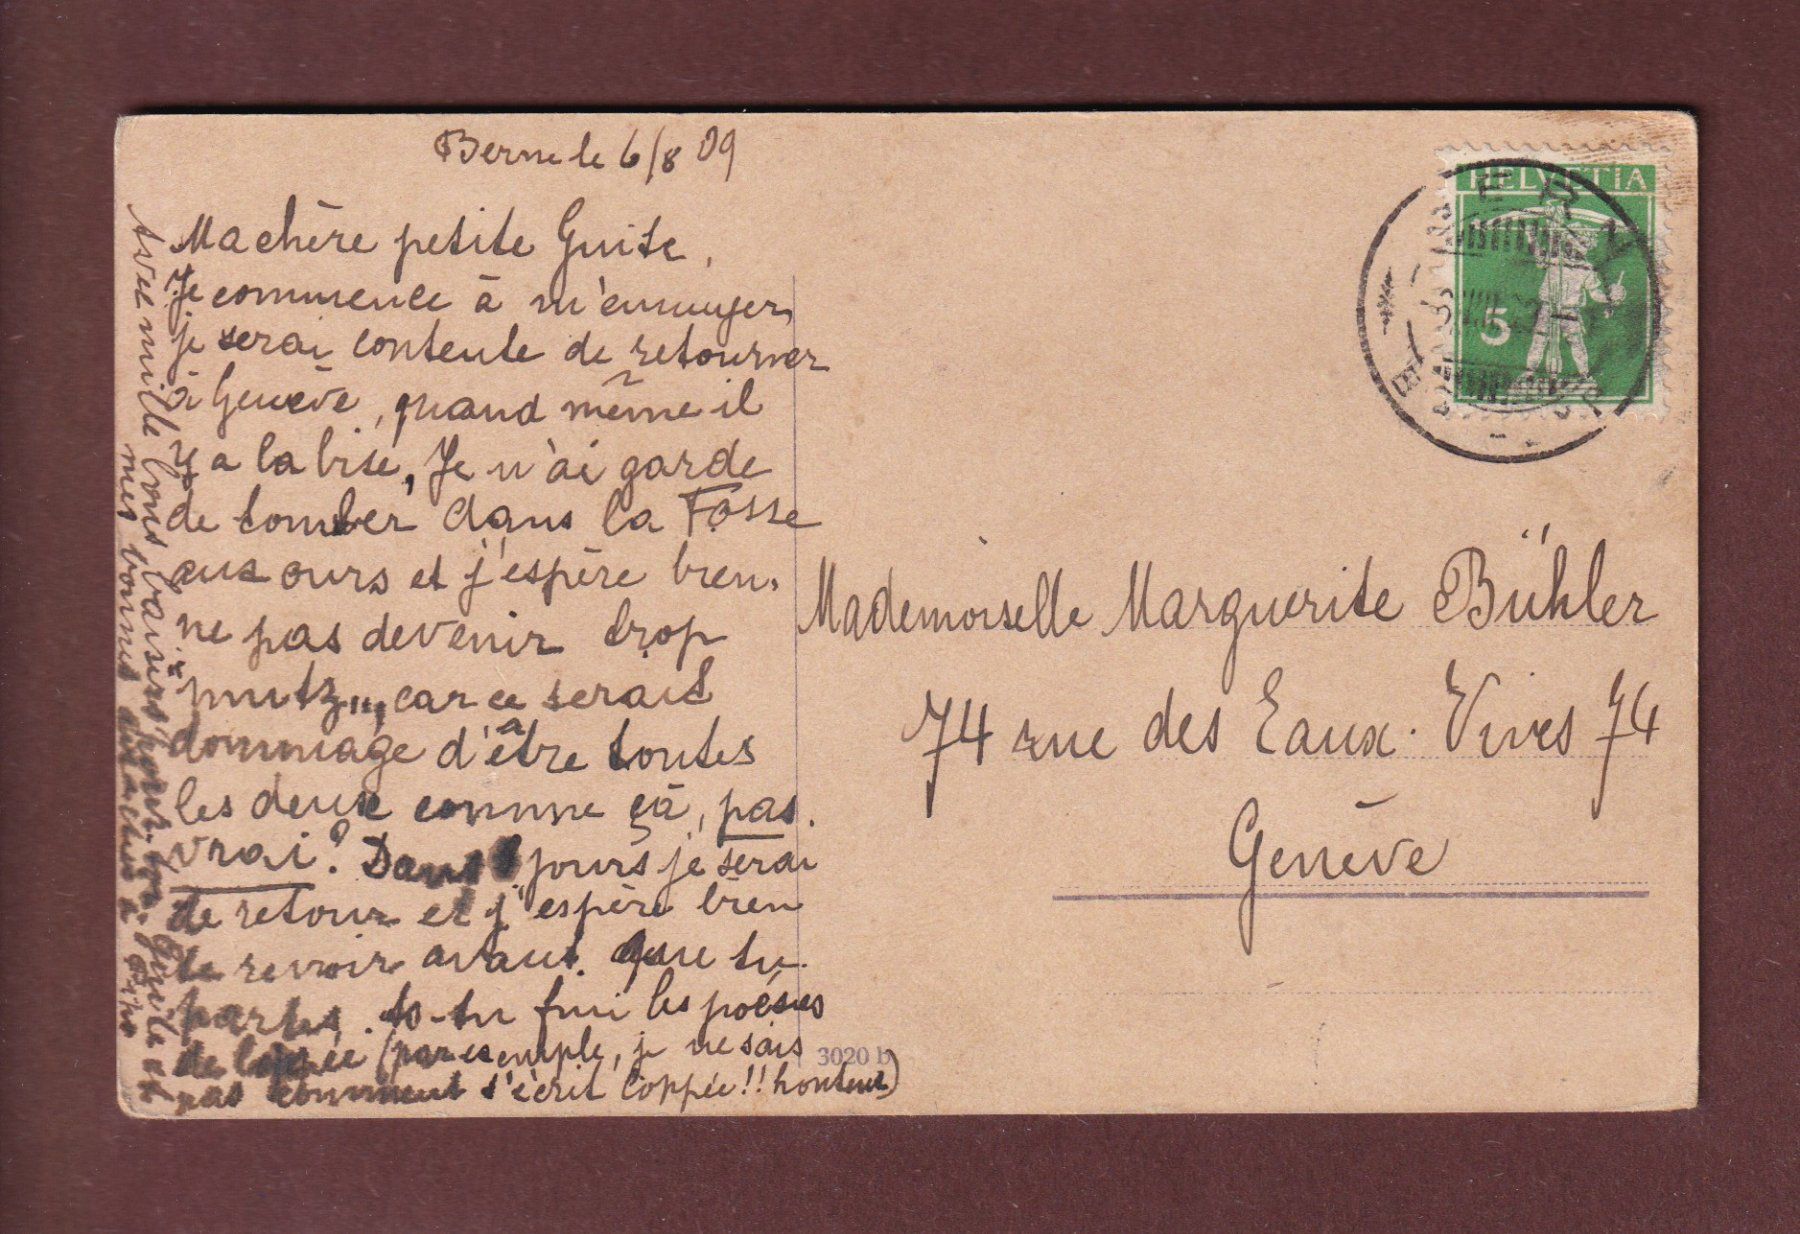 Berne le 6/8 09
Ma chère petite Guite,
Je commence à m'ennuyer,
je serai contente de retourner
à Genève, quand même il
y a la bise. Je n'ai garde
de tomber dans la Fosse
aux ours et j'espère bien
ne pas devenir trop
mutz,,, car ce serait
dommage d'être toutes
les deux comme çà, pas
vrai? Dans jours je serai
de retour et j'espère bien
te revoir avant que tu
partes. As-tu fini les poésies
de (par exemple, je ne sais
pas comment s'écrit Coppée!! honteux)
Avec mille bons baisers pour toi Guite et
mes bonnes amitiés à
HELVETIA
5
BERN
Mademoiselle Marguerite Bühler
74 rue des Eaux-Vives 74
Genève
3020 b